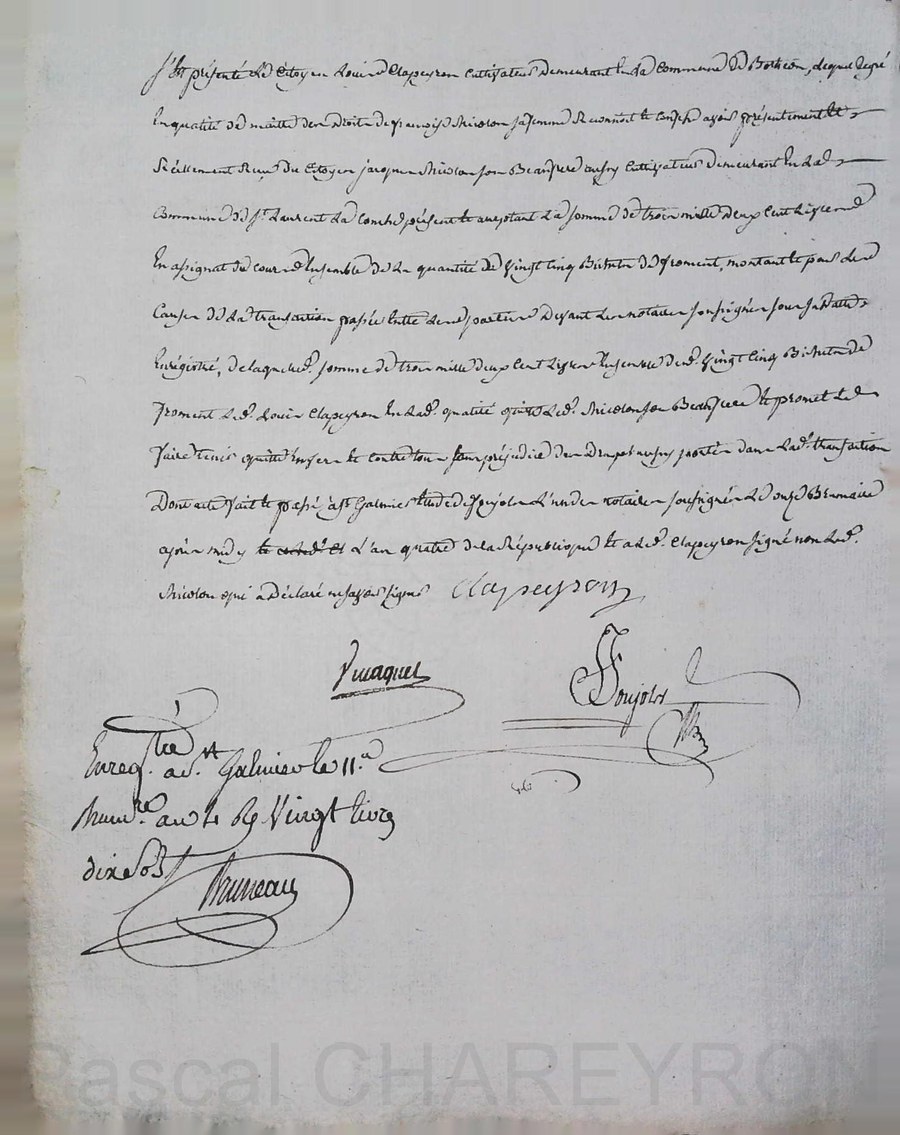 S'est présenté le Citoyen Louis Clapeyron Cultivateur demeurant en la commune de Bothéon, lequel de gré
En qualité de maitre des Droits de françoise Nicolas sa femme Reconnoit et confesse avoir présentement et
Réellement Reçu du Citoyen jacques Nicolas son Beaufrere aussy Cultivateur demeurant en lad.
Commune de St. Laurent La Conche présent et acceptant La somme de trois mille deux Cent Livres
En assignat du cours Ensemble de La quantité de Vingt Cinq Bichets de froment, montant et pour les
Causes de La transaction passée Entre Les parties Devant Les notaires soussignés sous sa Datte
Enrégistré, de laquelle d. somme de trois mille deux Cent Livres Ensemble desd. Vingt Cinq Bichets de
froment Led. Louis Clapeyron En lad. qualité quitte Led. Nicolas son Beaufrere et promet Le
faire tenir quitte Envers et contre tous sans préjudice des aussy portés dans Lad. transaction
Dont acte fait et passé à St Galmier Etude de Poujols L'un des notaires soussignés Le onze Brumaire
après midy L'an quatre de la République et a Led. Clapeyron signé non Led.
Nicolas qui a Déclaré ne savoir signer Clapeyron
Poujols
Enreg.tré a St. Galmier le 11.
Brum.re an 4 Vingt livres
dix sols
Bruneau
Pascal CHAREYRON